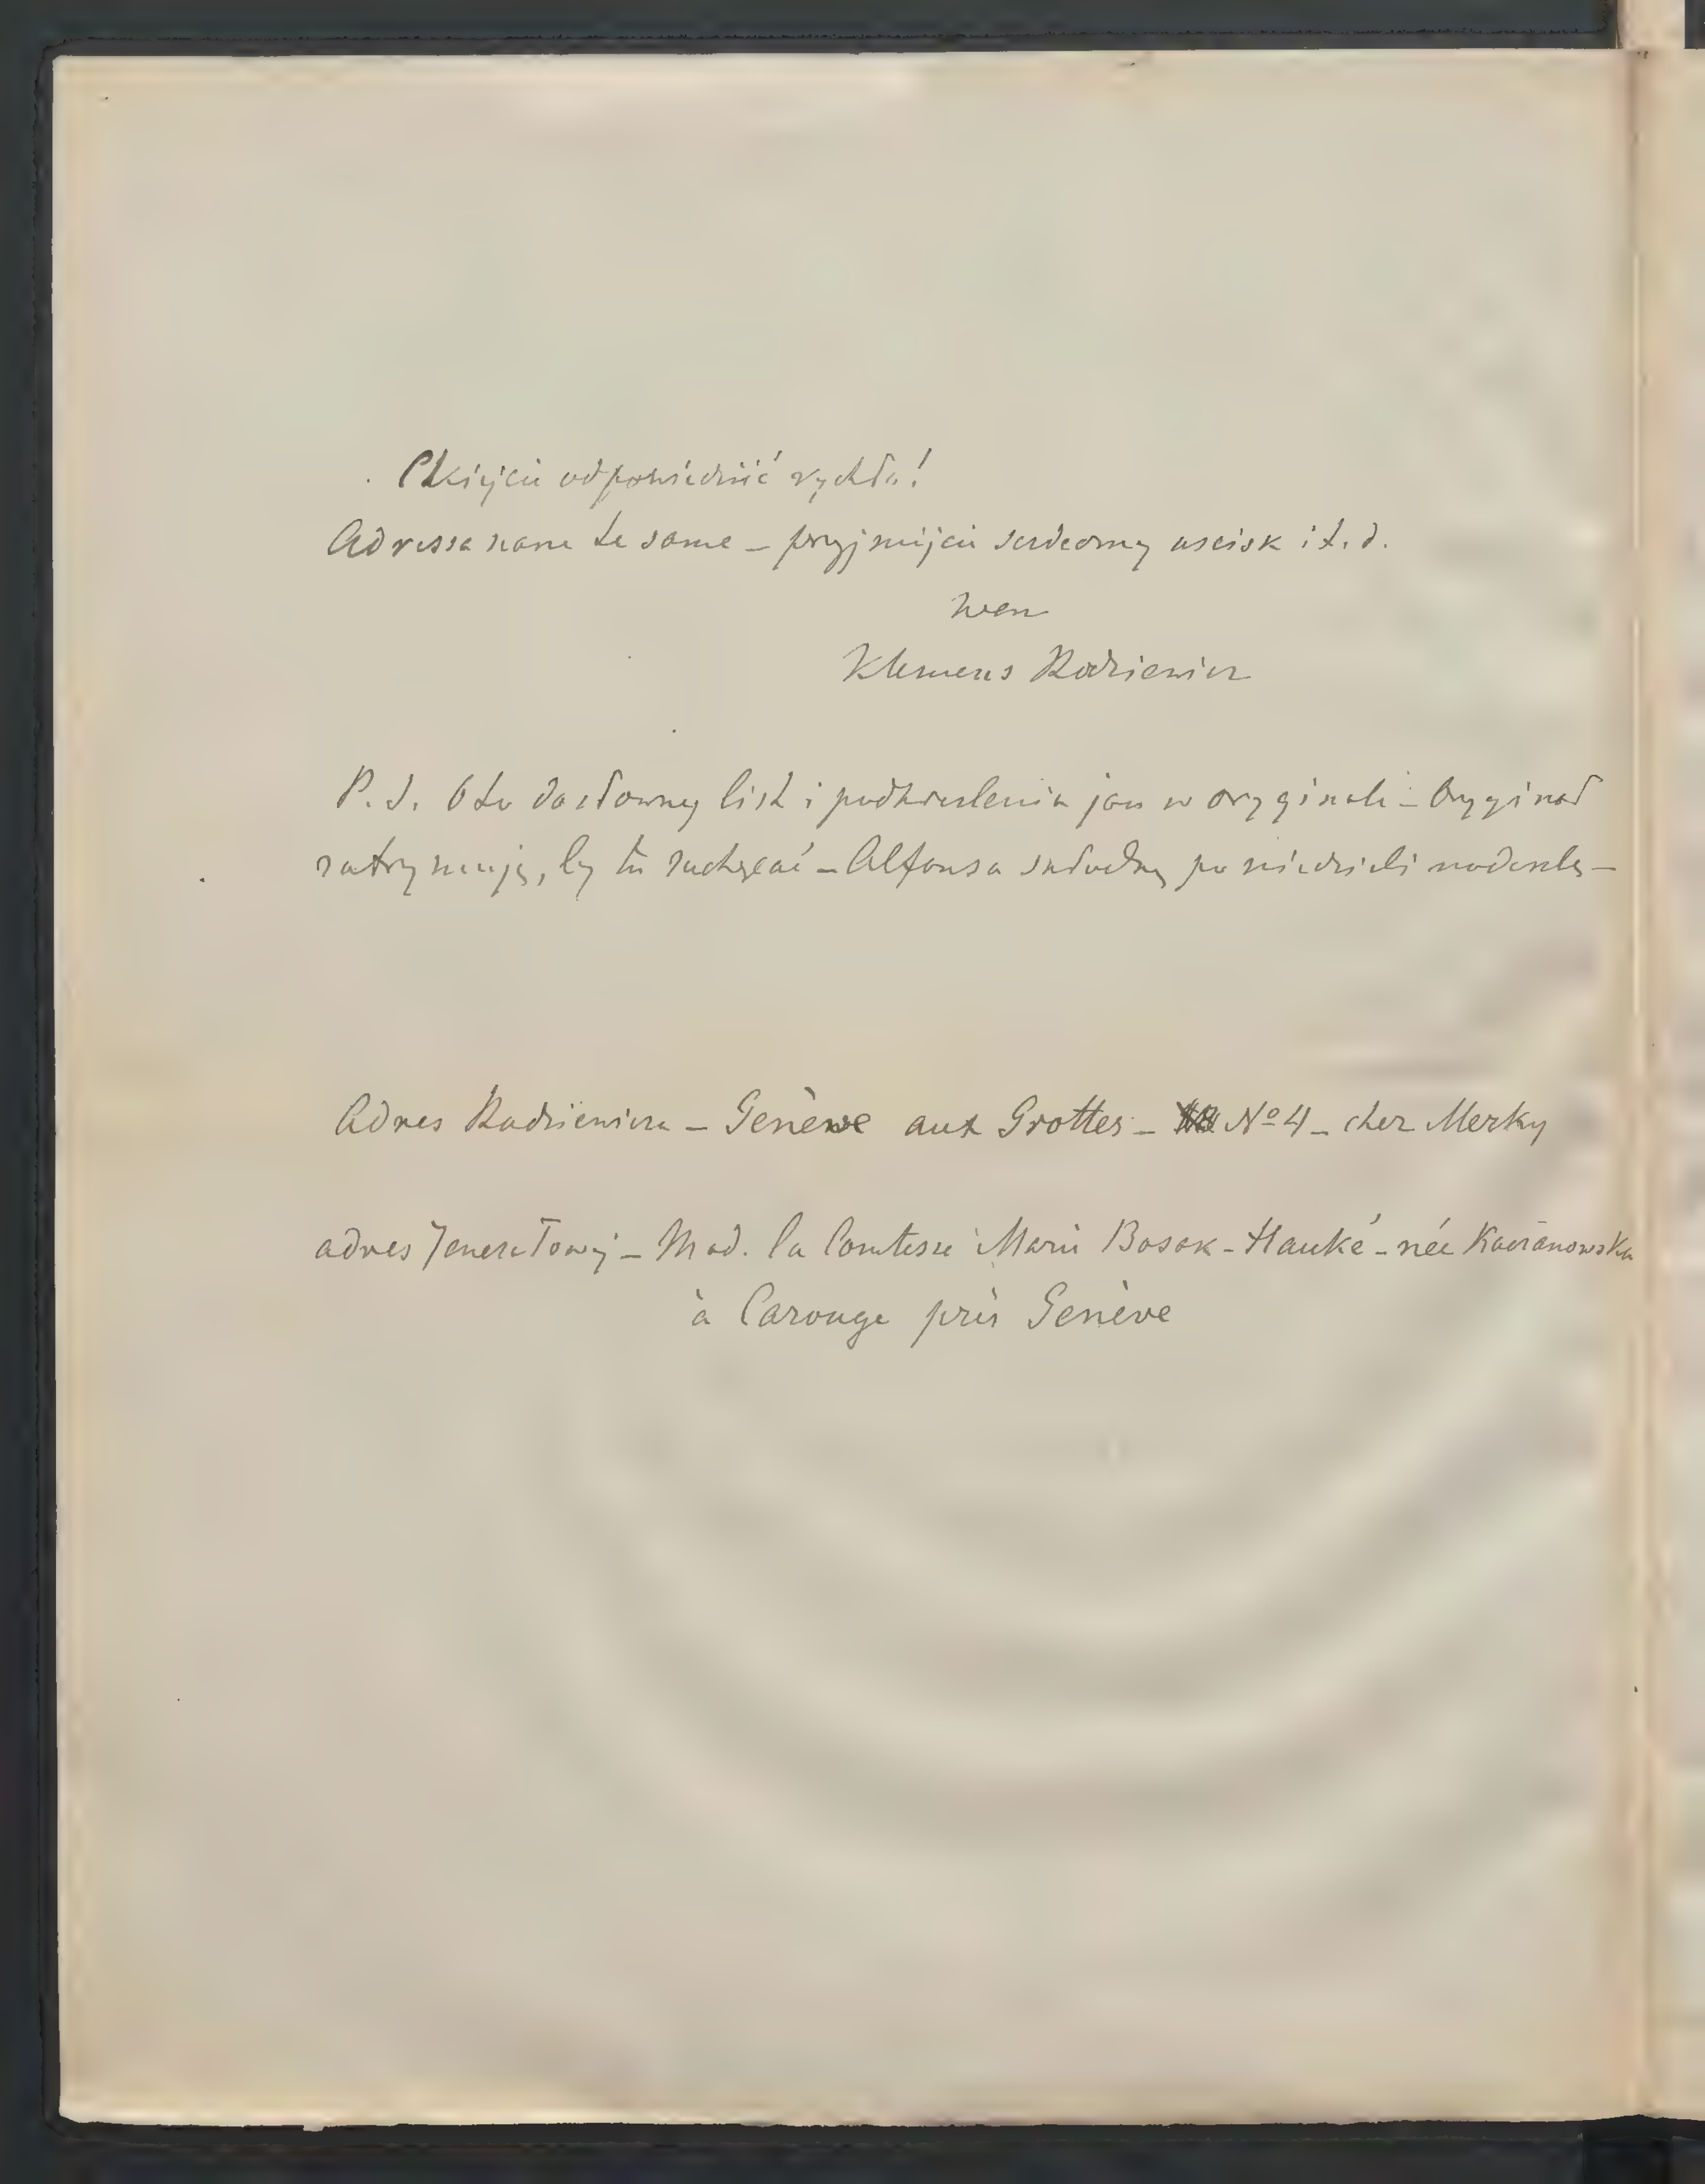 Chciejcie odpowiedzieć rychło!
Adressa nasze te same – przyjmijcie serdeczny uscisk i t. d.
Wasz
Klemens Rodziewicz
P. S. Oto dosłowny list i podkreslenia jak w oryginale – Oryginał
zatrzymuję, by tu zachęcać – Alfonsa po niedzieli nadeszlę –
Adres Rodziewicza – Genève aux Grottes – No 4 – chez Merky
adres Jenerałowej – Mad. la Comtesse Marie Bosak-Hauké – née Kacżanowska
à Carouge près Genève